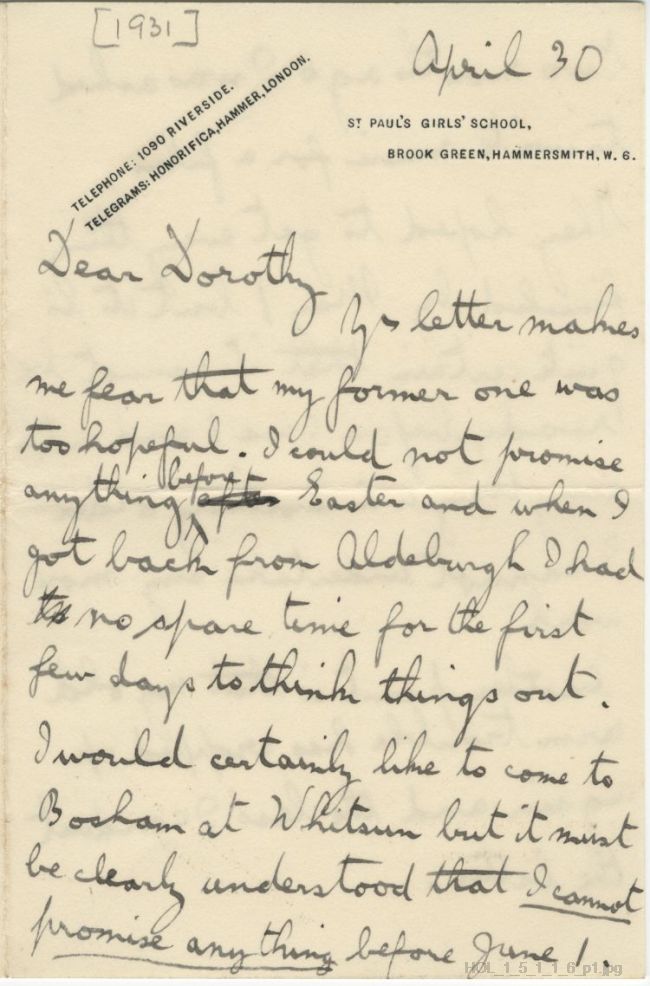 [1931]
April 30
TELEPHONE: 1090 RIVERSIDE.
TELEGRAMS: HONORIFICA, HAMMER, LONDON.
ST PAUL'S GIRLS' SCHOOL,
BROOK GREEN, HAMMERSMITH, W. 6.
Dear Dorothy
Yr letter makes
me fear that my former one was
too hopeful. I could not promise
anything before after Easter and when I
got back from Aldeburgh I had
no spare time for the first
few days to think things out.
I would certainly like to come to
Bosham at Whitsun but it must
be clearly understood that I cannot
promise anything before June 1.
HOL_1_5_1_1_6_p1.jpg